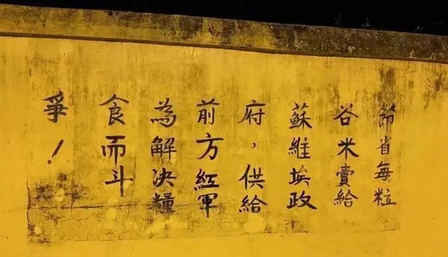 節省每粒
谷米賣給
蘇維埃政
府，供給
前方紅軍
為解決糧
食而斗
爭！